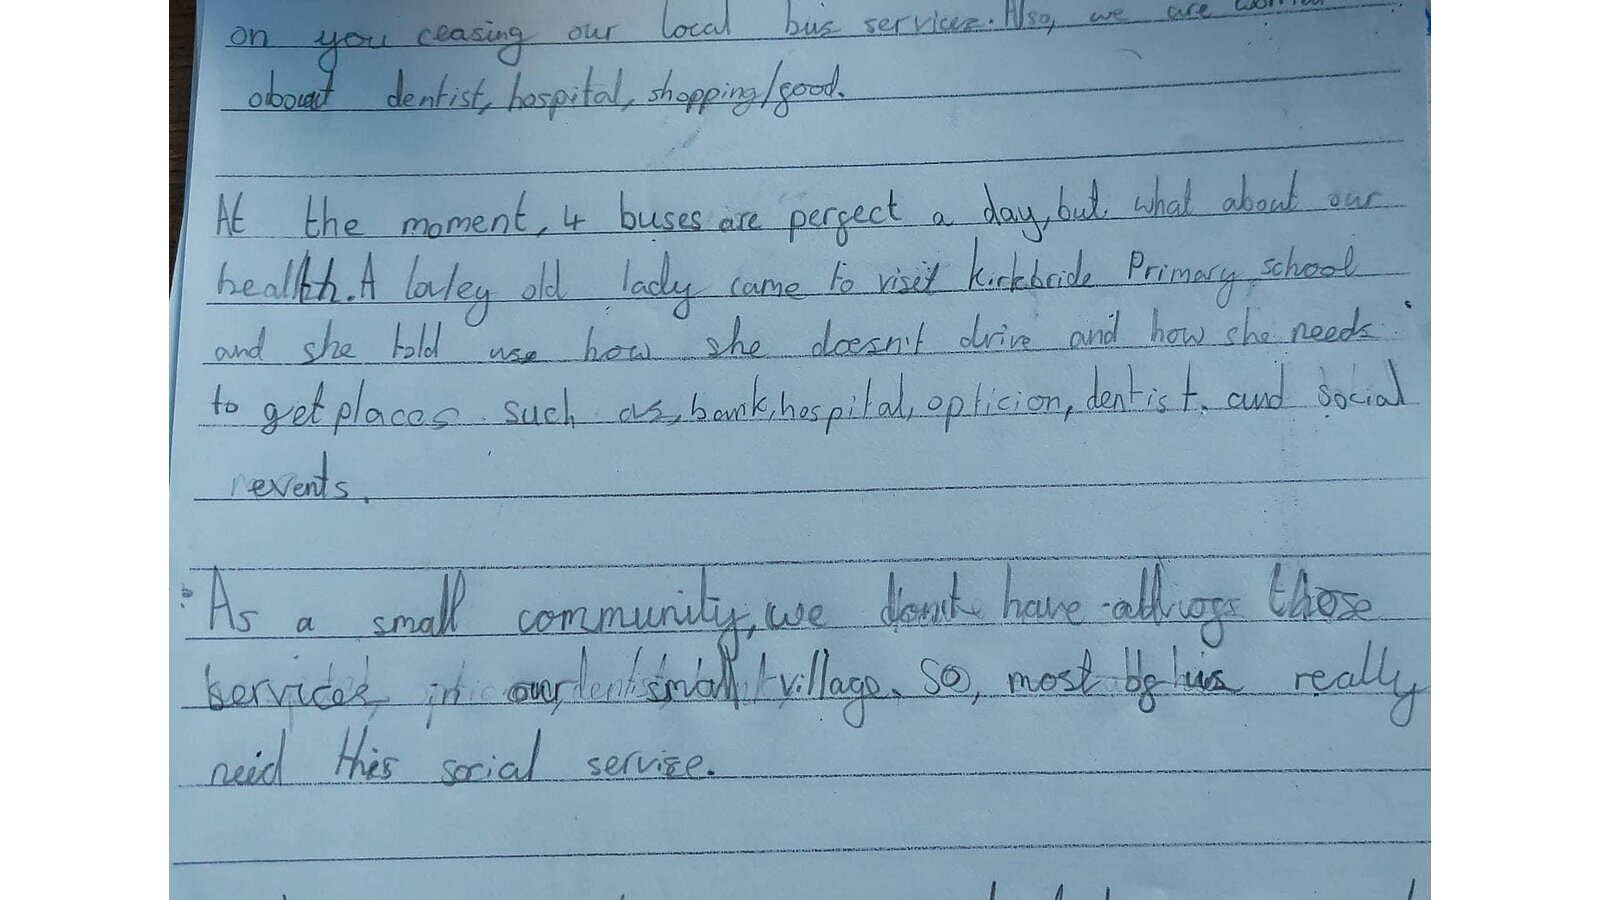 on you ceasing our local bus services. Also, we are
about dentist, hospital, shopping/food.
At the moment, 4 buses are perfect a day, but what about our
health. A loveley old lady came to visit Kirkbride Primary school
and she told use how she doesn't drive and how she needs
to get places such as, bank, hospital, opticion, dentist, and social
events.
As a small community, we don't have all of those
services in our small village. So, most of us really
need this social servise.